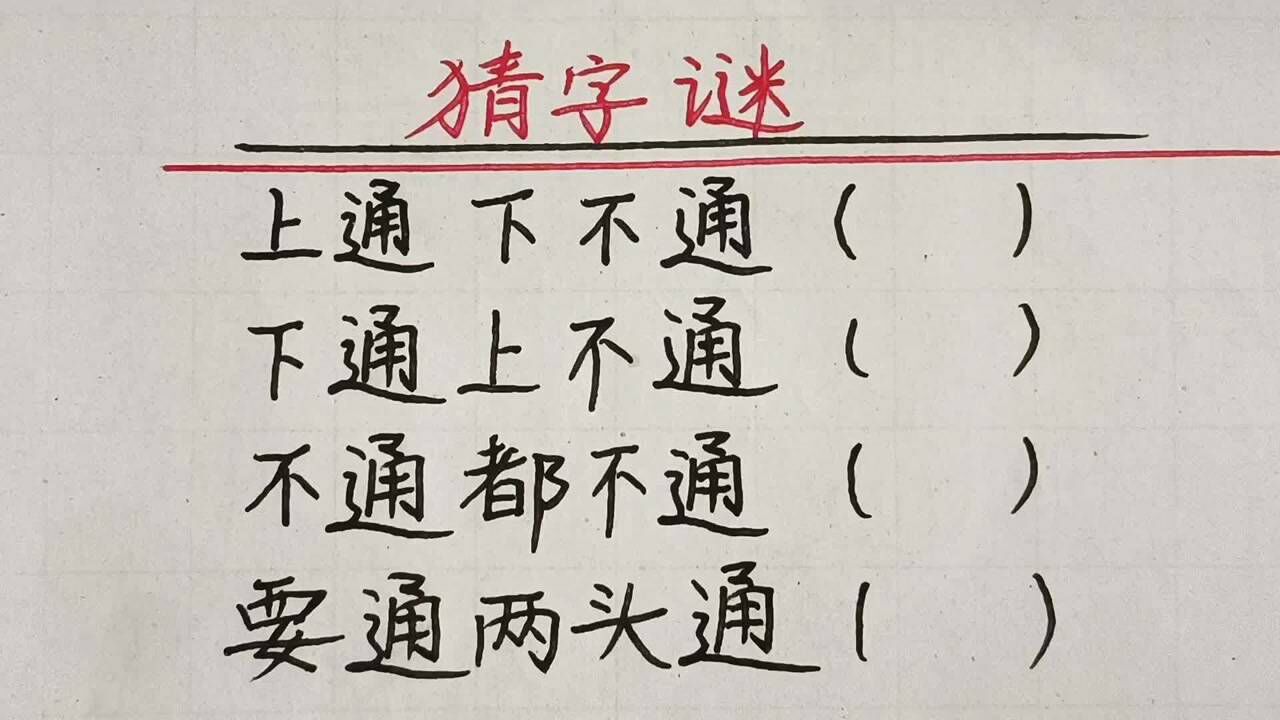 猜字谜
上通下不通（ ）
下通上不通（ ）
不通都不通（ ）
要通两头通（ ）